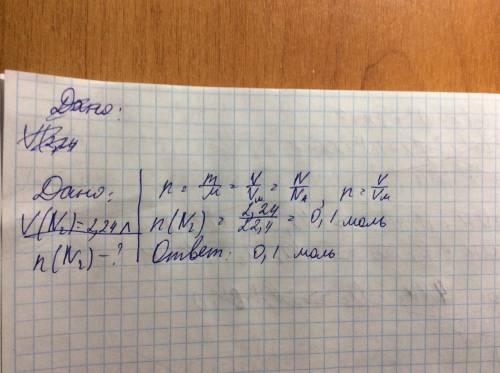 Дано:
V 2,24
Дано:
V(N₂)=2,24 л
n(N₂) - ?
n = m/M = V/Vм = N/Nᴀ , n = V/Vм
n(N₂) = 2,24/22,4 = 0,1 моль
Ответ: 0,1 моль